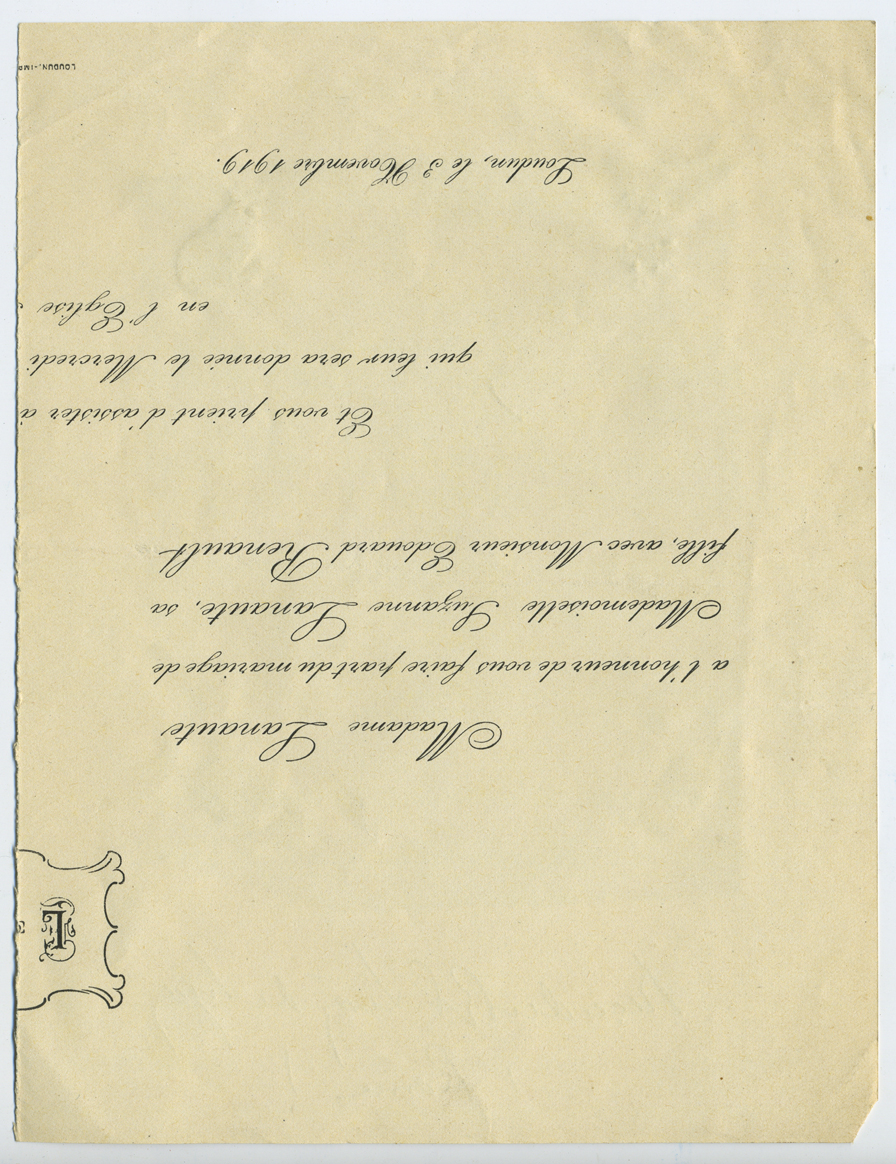 L
Madame Lanaute
a l'honneur de vous faire part du mariage de
Mademoiselle Suzanne Lanaute, sa
fille, avec Monsieur Edouard Renault
Et vous prient d'assister à
qui leur sera donnée le Mercredi
en l'Eglise
Loudun, le 3 Novembre 1919.
LOUDUN,-IMP